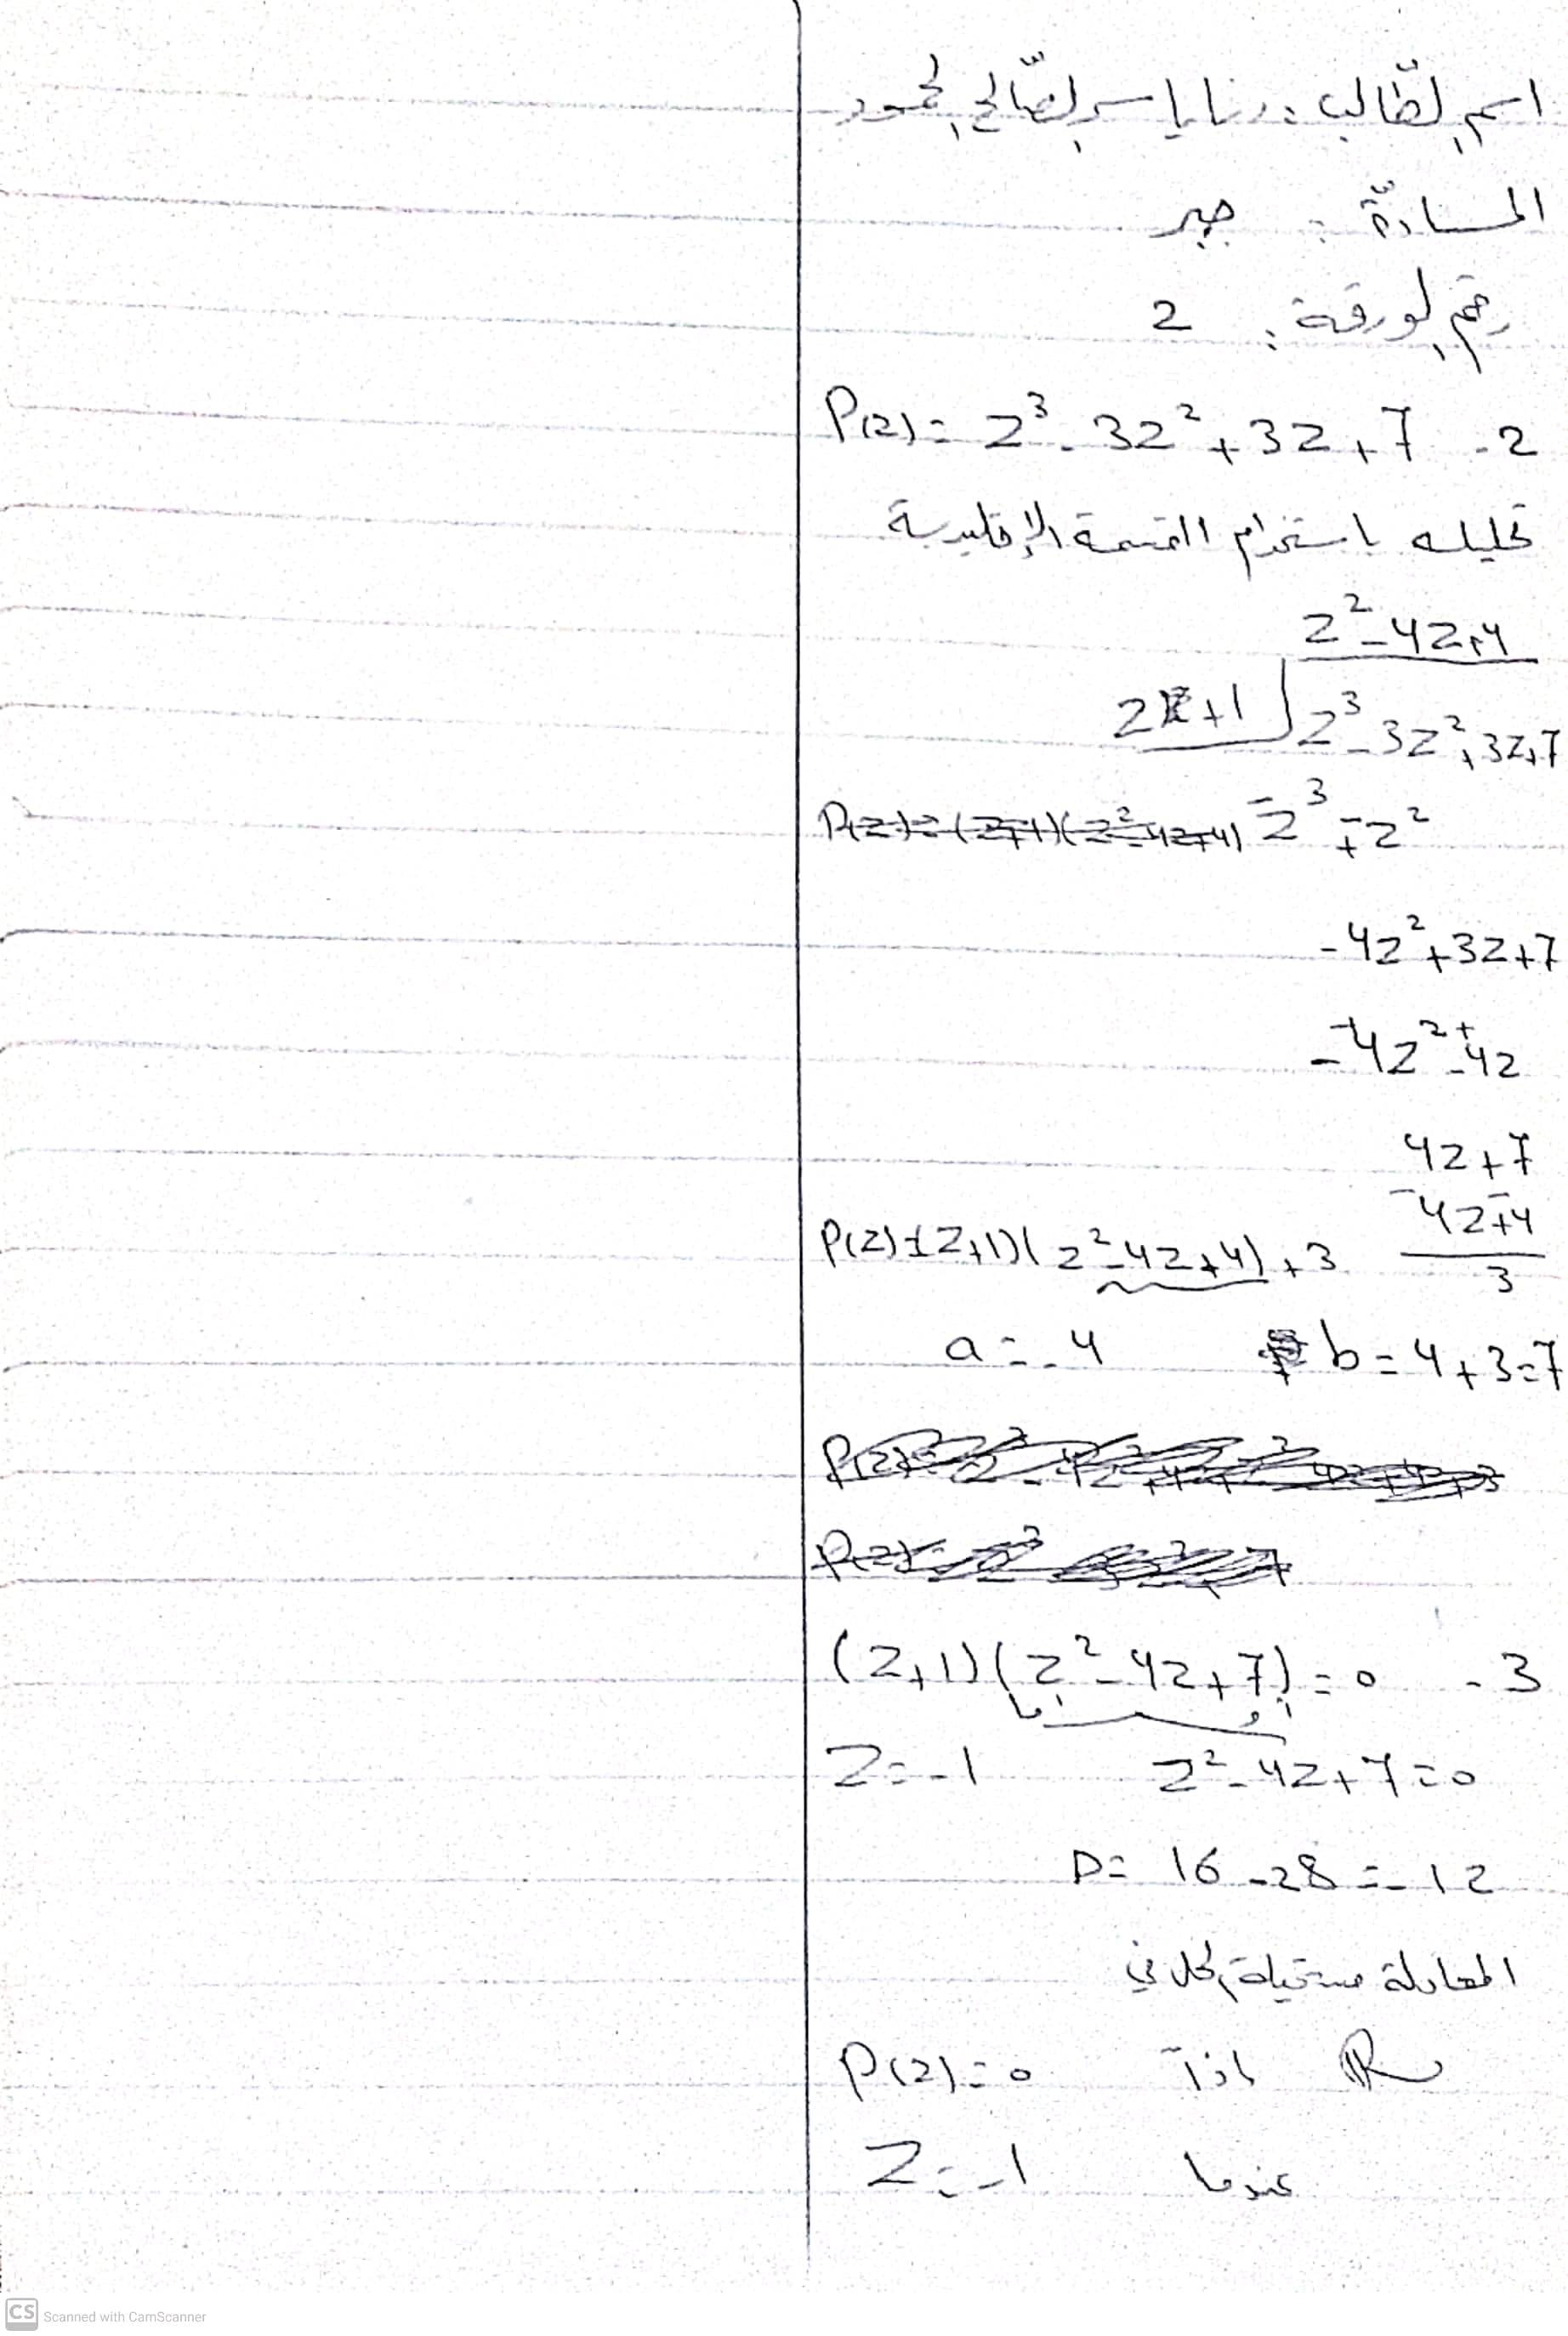 اسم الطّالب : رنا ياسر الصّالح الحمود
المادّة : جبر
رقم الورقة : 2
P(z) = z³ - 3z² + 3z + 7 - 2
تحليله باستخدام القسمة الإقليدية
z² - 4z + 4
z + 1 z³ - 3z² + 3z + 7
P(z) = (z+1)(z² - 4z + 4) z³ + z²
-4z² + 3z + 7
-4z² - 4z
4z + 7
4z + 4
P(z) = (z+1)(z² - 4z + 4) + 3
3
a = -4 b = 4 + 3 = 7
(z+1)(z² - 4z + 7) = 0 - 3
إما أو
z = -1 z² - 4z + 7 = 0
D = 16 - 28 = -12
المعادلة مستحيلة الحل في
R اذاً P(z) = 0
عندما z = -1
CS Scanned with CamScanner